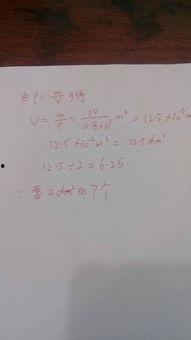 由ρ=m/V可得
V=m/ρ=10/0.8×10³ m³=12.5×10⁻³m
12.5×10⁻³m³=12.5dm³
12.5÷2=6.25
∴要2dm³的7个